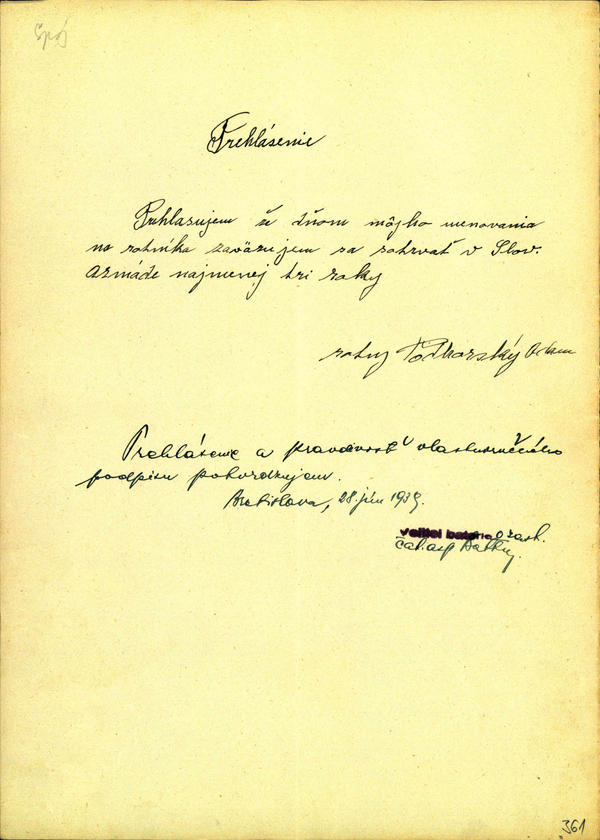 Spoj
Prehlásenie
Prehlasujem že dňom môjho menovania
na rotníka zaväzujem sa zotrvať v Slov.
armáde najmenej tri roky
rotný Podhorský Adam
Prehlásenie a pravdivosť vlastnoručného
podpisu potvrdzujem.
Bratislava, 28. jún 1939.
Veliteľ batérie v zast.
čat. asp.
361